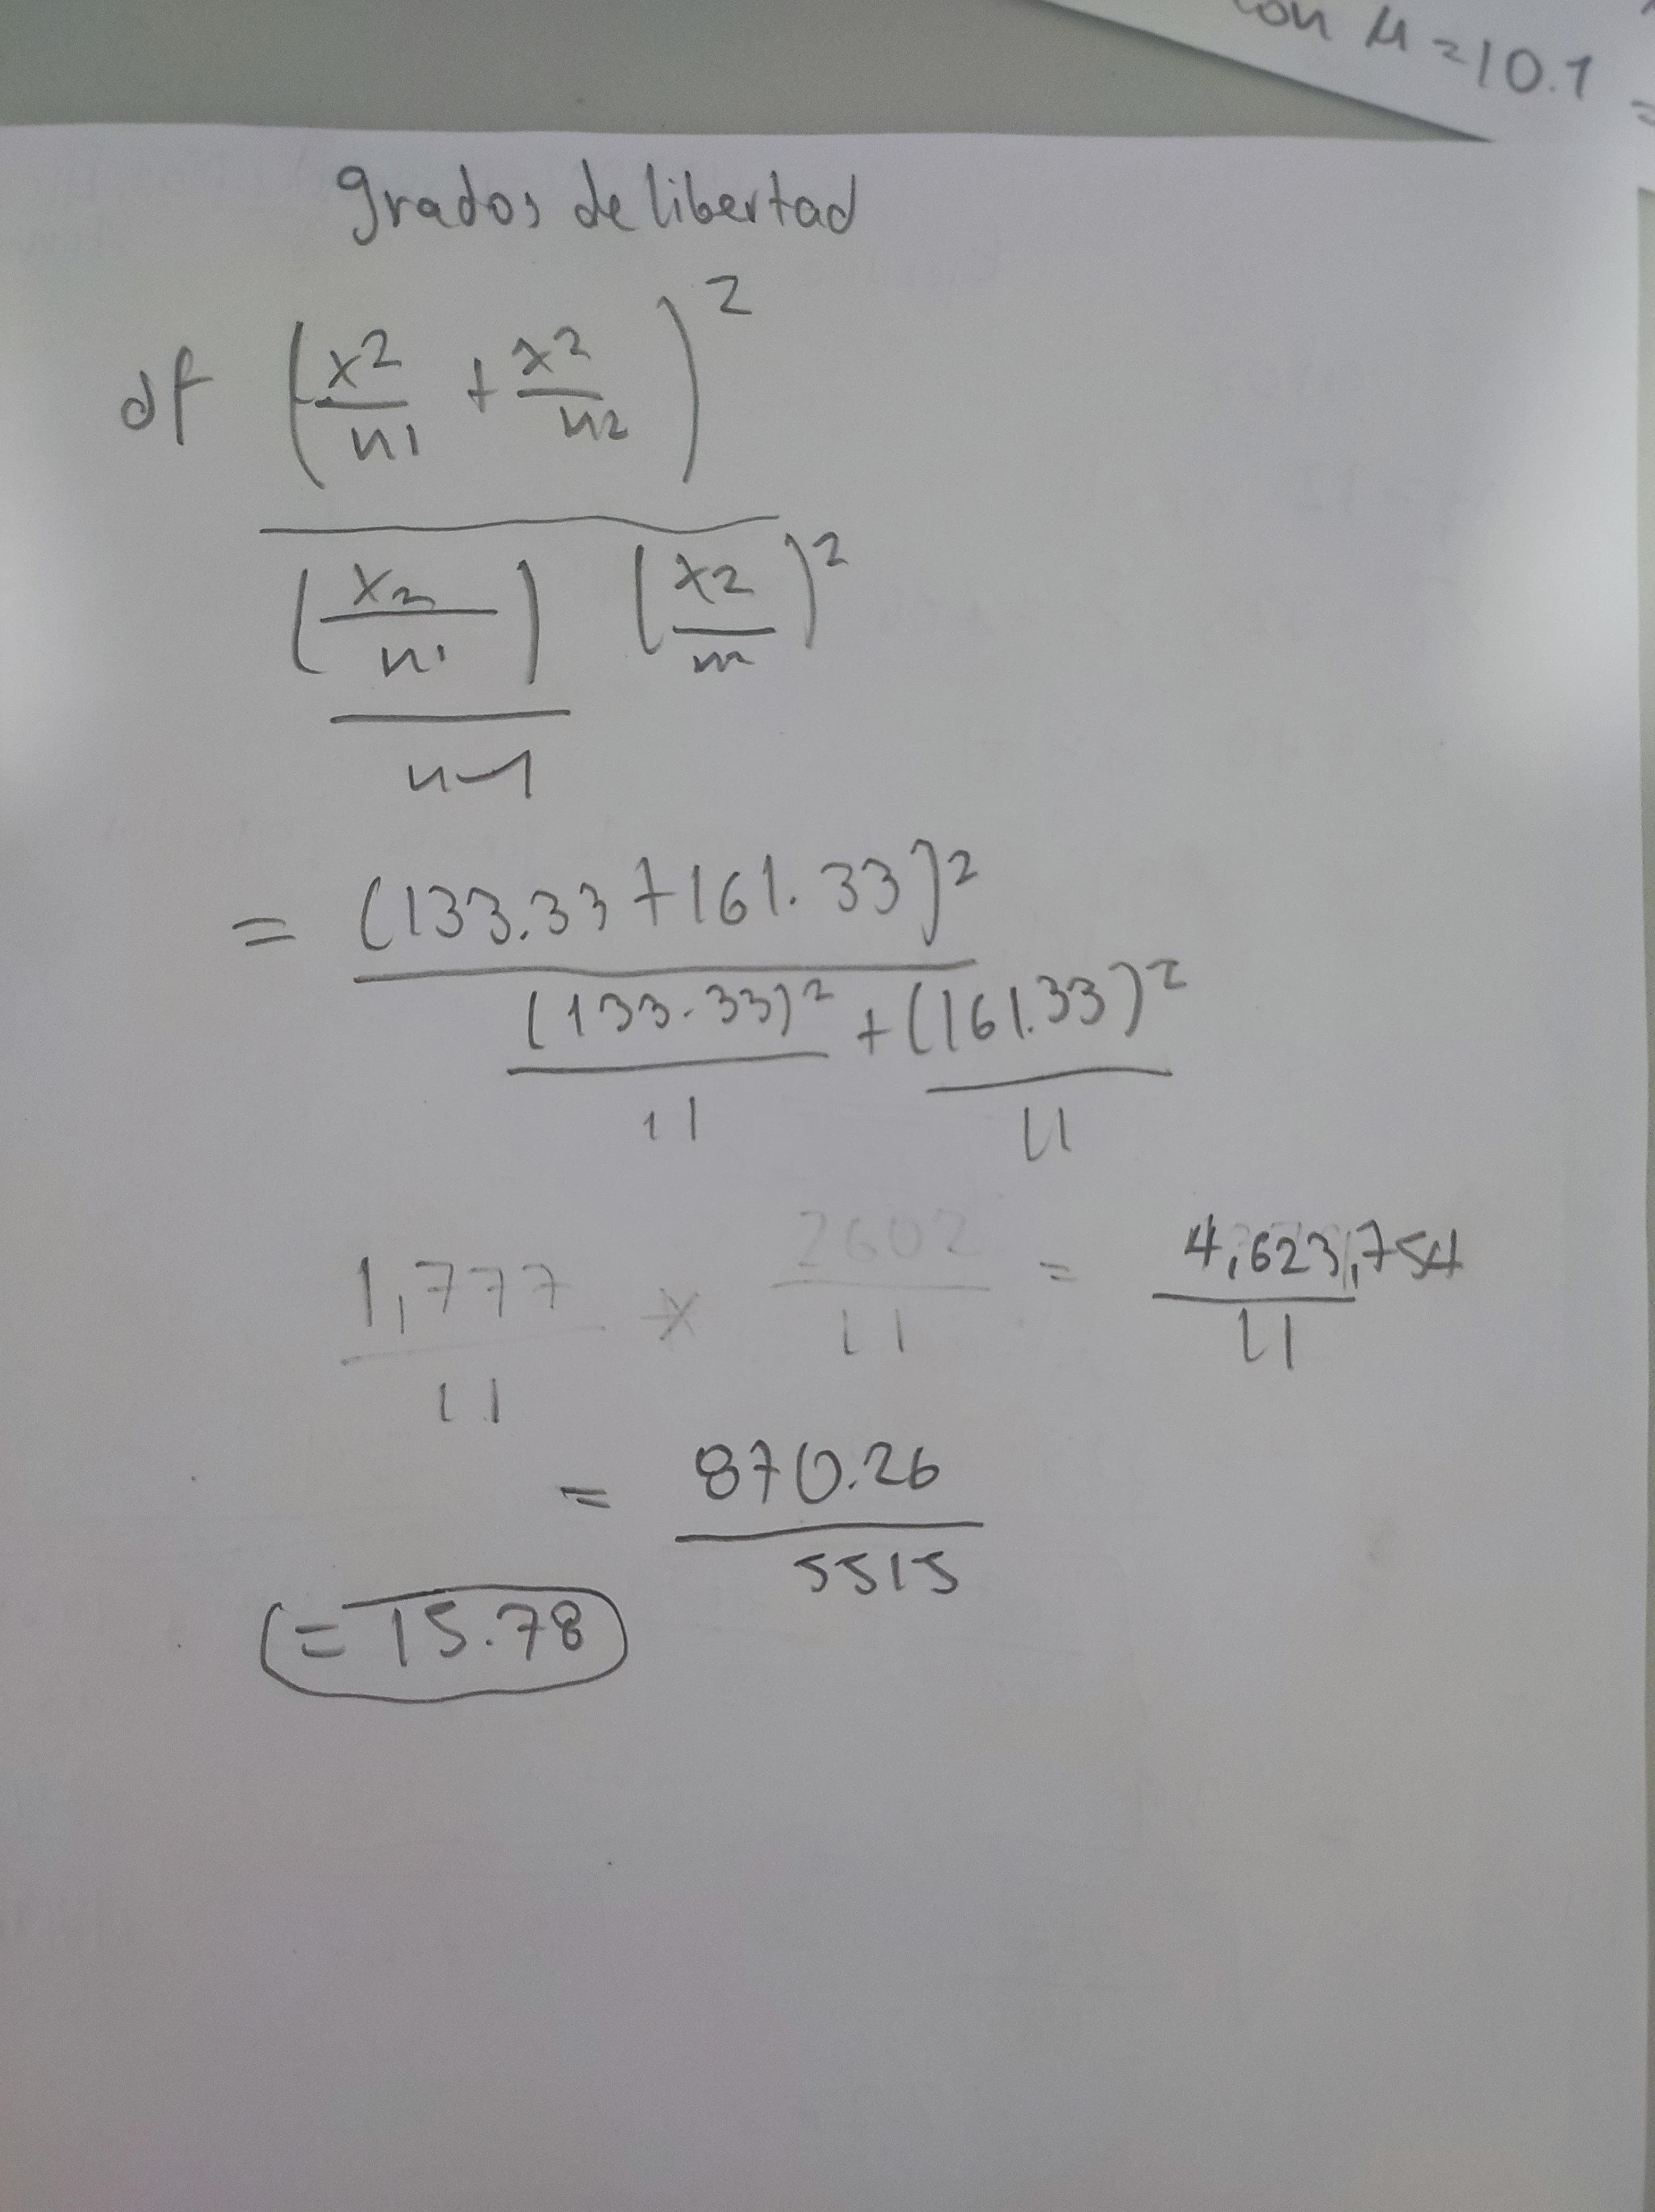 on μ = 10.1
=
grados de libertad
df (x2/n1 + x2/n2)2
(x2/n1) (x2/n2)2
n-1
= (133.33 + 161.33)2
(133.33)2 + (161.33)2
11 11
1,777 x 2602 = 4,623,754
11 11 11
= 870.26
5515
= 15.78